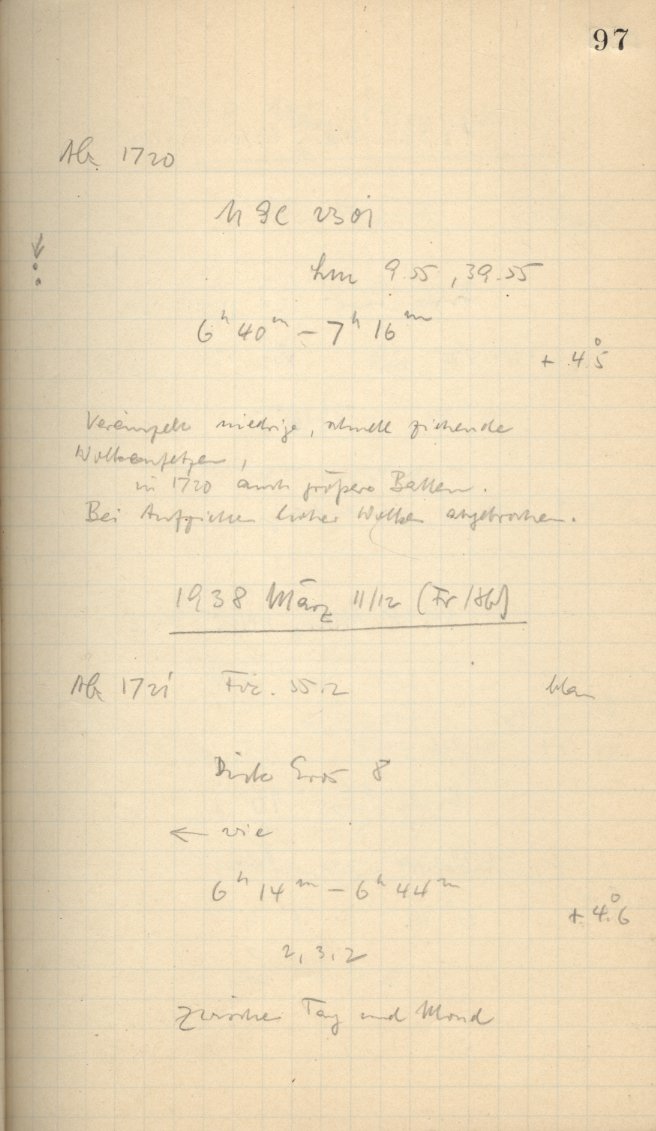 97
1720
NGC 2301
9.55, 39.55
6ʰ 40ᵐ – 7ʰ 16ᵐ
+ 4.5°
Vereinzelt niedrige, schnell ziehende
Wolkenfetzen,
in 1720 auch größere Ballen.
Bei Aufziehen hoher Wolken abgebrochen.
1938 März 11/12 (Fr/Sb)
1721 35.2 blau
8
← wie
6ʰ 14ᵐ – 6ʰ 44ᵐ
+ 4.6°
2, 3, 2
Zwischen Tag und Mond